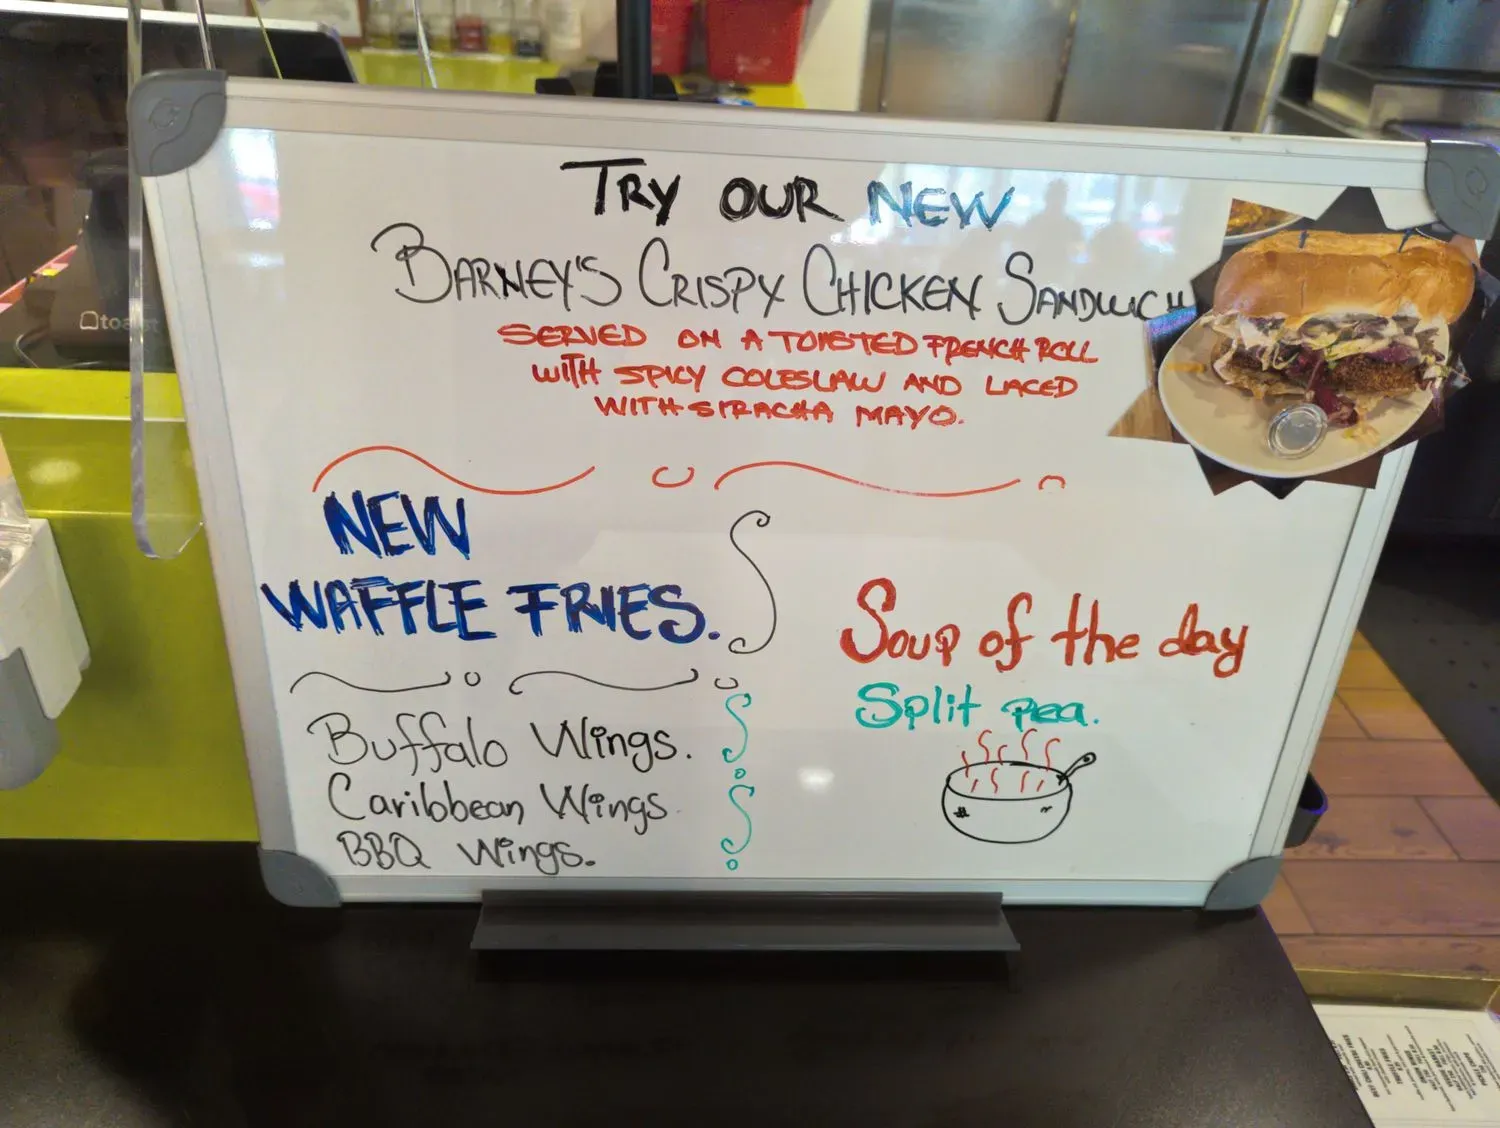 TRY OUR NEW
BARNEY'S CRISPY CHICKEN SANDWICH
SERVED ON A TOASTED FRENCH ROLL
WITH SPICY COLESLAW AND LACED
WITH SIRACHA MAYO.
NEW
WAFFLE FRIES.
Buffalo Wings.
Caribbean Wings
BBQ Wings.
Soup of the day
Split pea.
toast